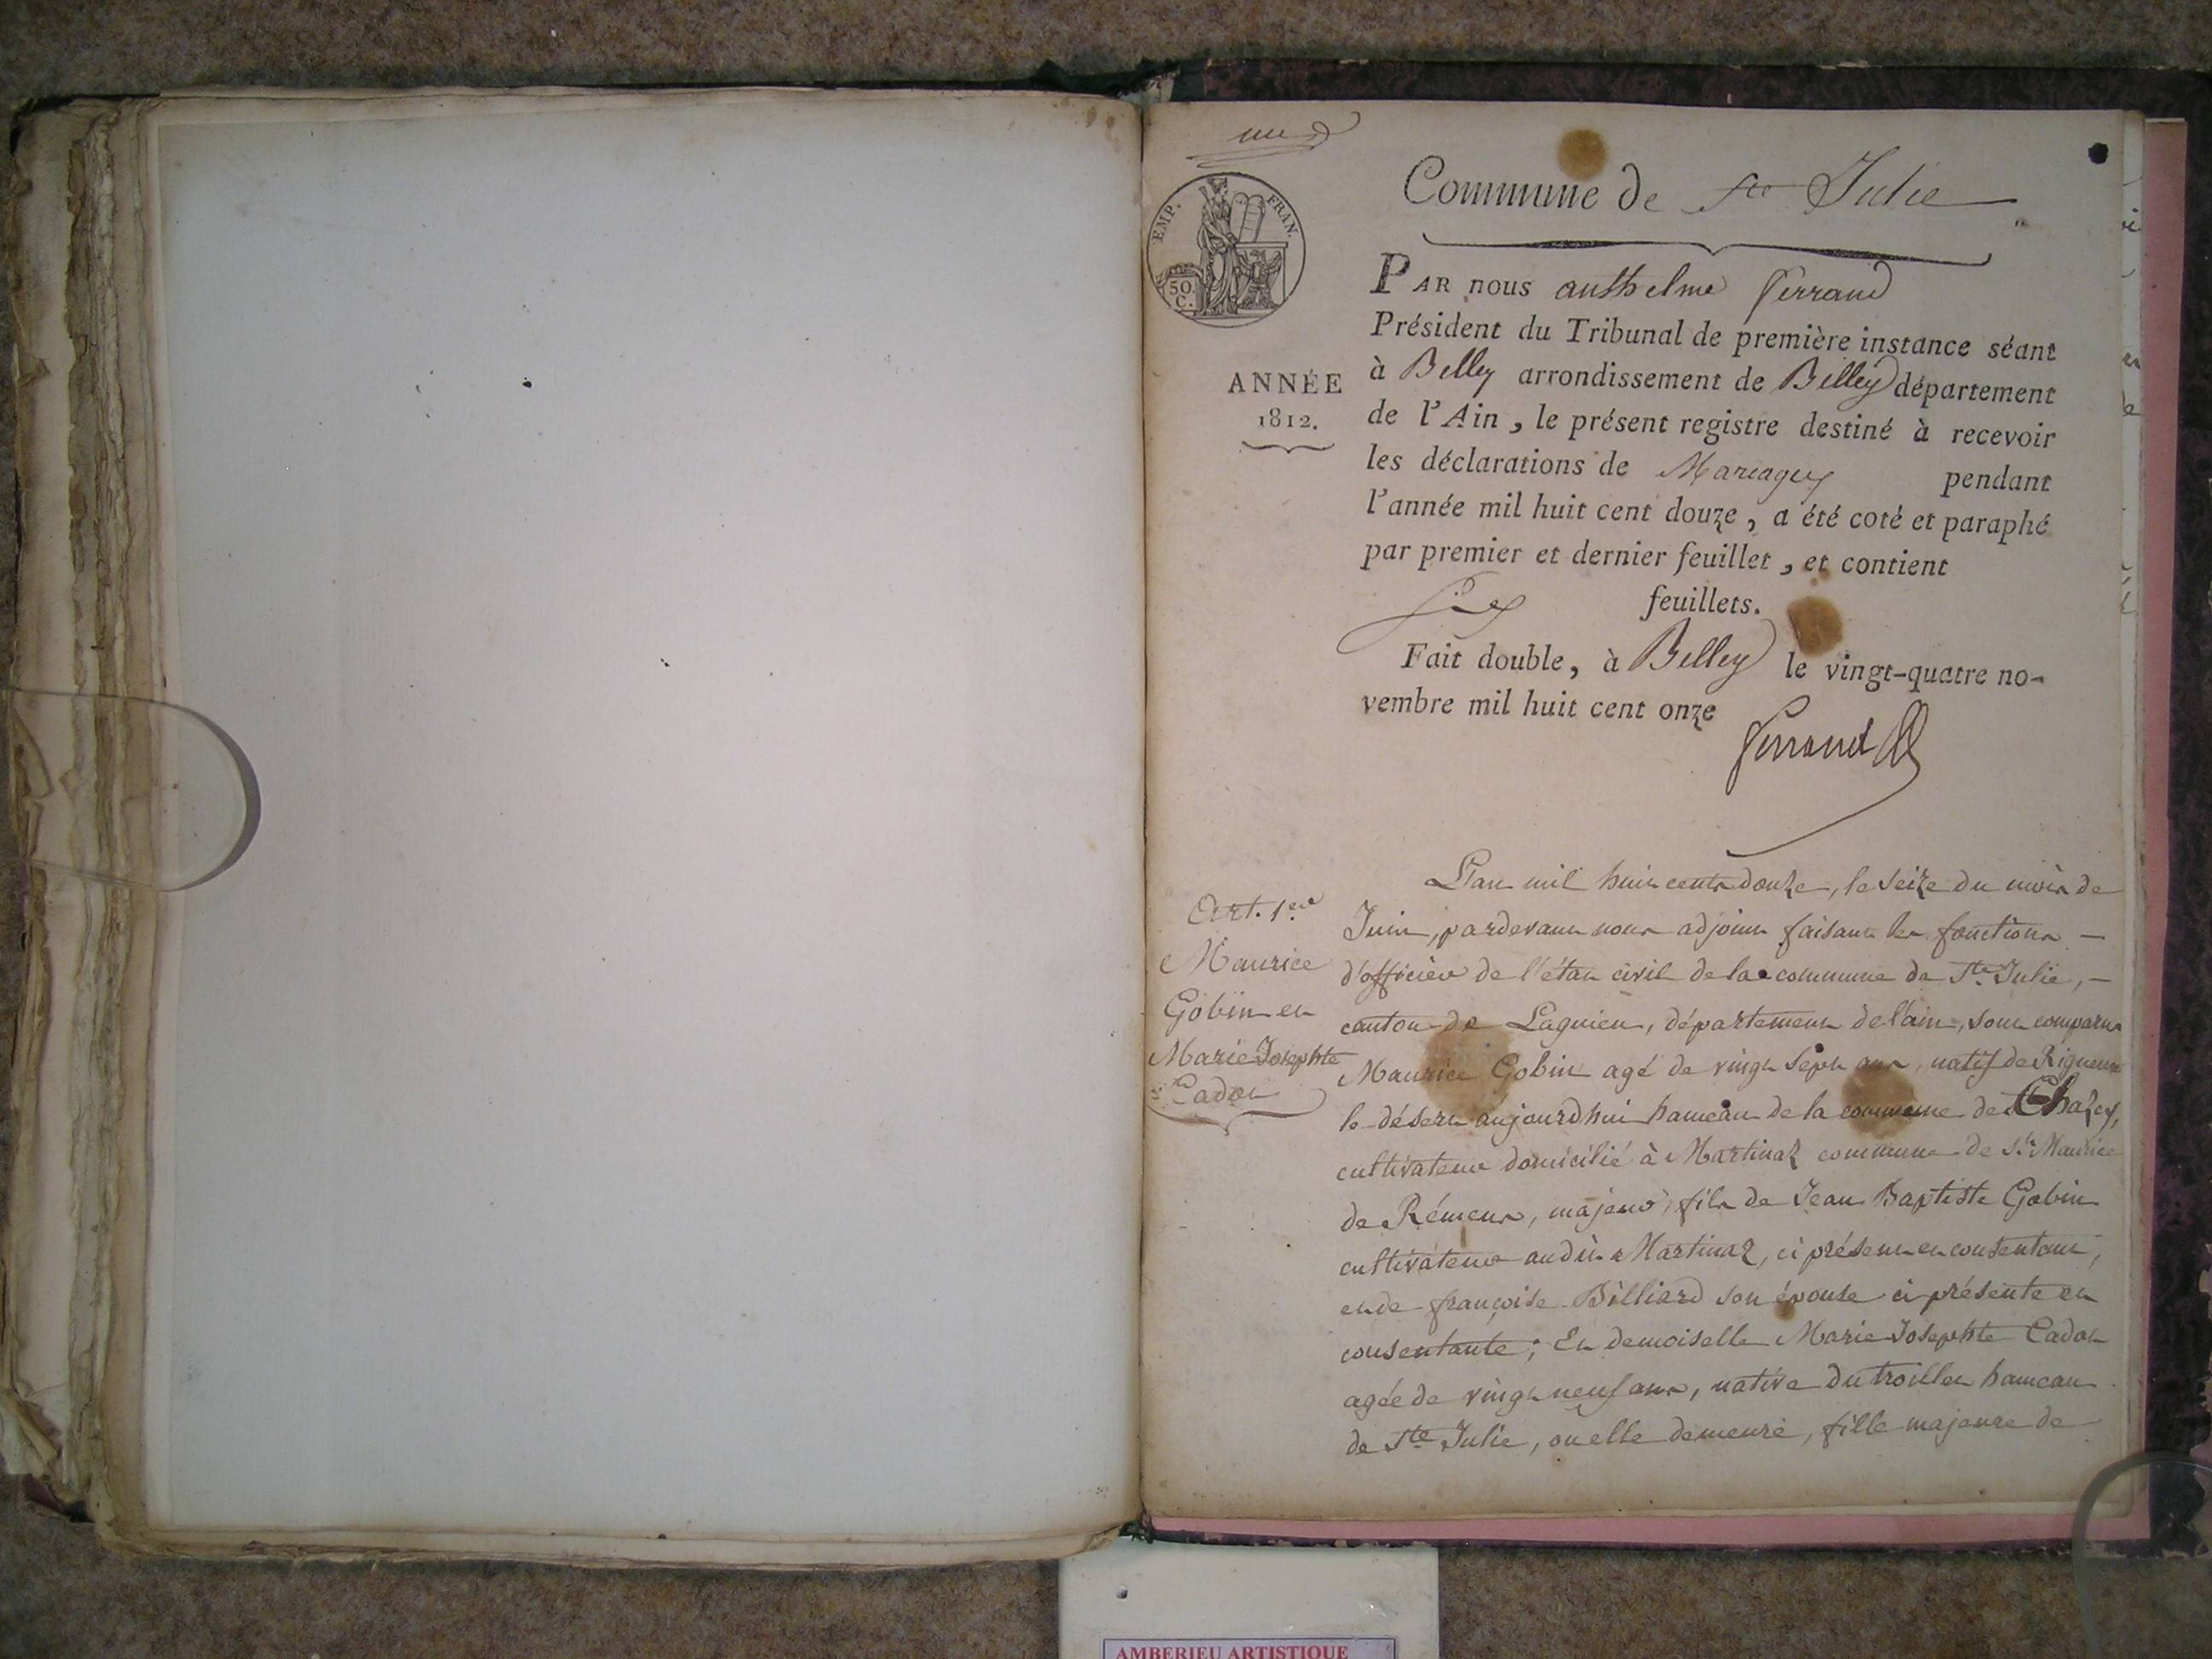 une
EMP. FRAN.
50.
C.
Commune de Ste Julie
PAR nous anthelme ferrand
Président du Tribunal de première instance séant
à Belley arrondissement de Belley département
de l'Ain, le présent registre destiné à recevoir
les déclarations de Mariages pendant
l'année mil huit cent douze, a été coté et paraphé
par premier et dernier feuillet, et contient
feuillets.
Fait double, à Belley le vingt-quatre no-
vembre mil huit cent onze
ferrand
ANNÉE
1812.
Art. 1er
Maurice
Gobin et
Marie Josephte
Cadot
L'an mil huit cents douze, le seize du mois de
Juin, pardevant nous adjoint faisant les fonctions —
d'officier de l'état civil de la commune de Ste Julie, —
canton de Lagnieu, département de l'ain, sont comparus
Maurice Gobin agé de vingt sept ans, natif de Rigneux
le désert aujourdhui hameau de la commune de Chazey,
cultivateur domicilié à Martinaz commune de St Maurice
de Rémens, majeur, fils de Jean Baptiste Gobin
cultivateur audit Martinaz, ci présent et consentant,
et de françoise Billiard son épouse ci présente et
consentante; Et demoiselle Marie Josephte Cadot
agée de vingt neuf ans, native du trollet hameau
de Ste Julie, ou elle demeure, fille majeure de
AMBERIEU ARTISTIQUE